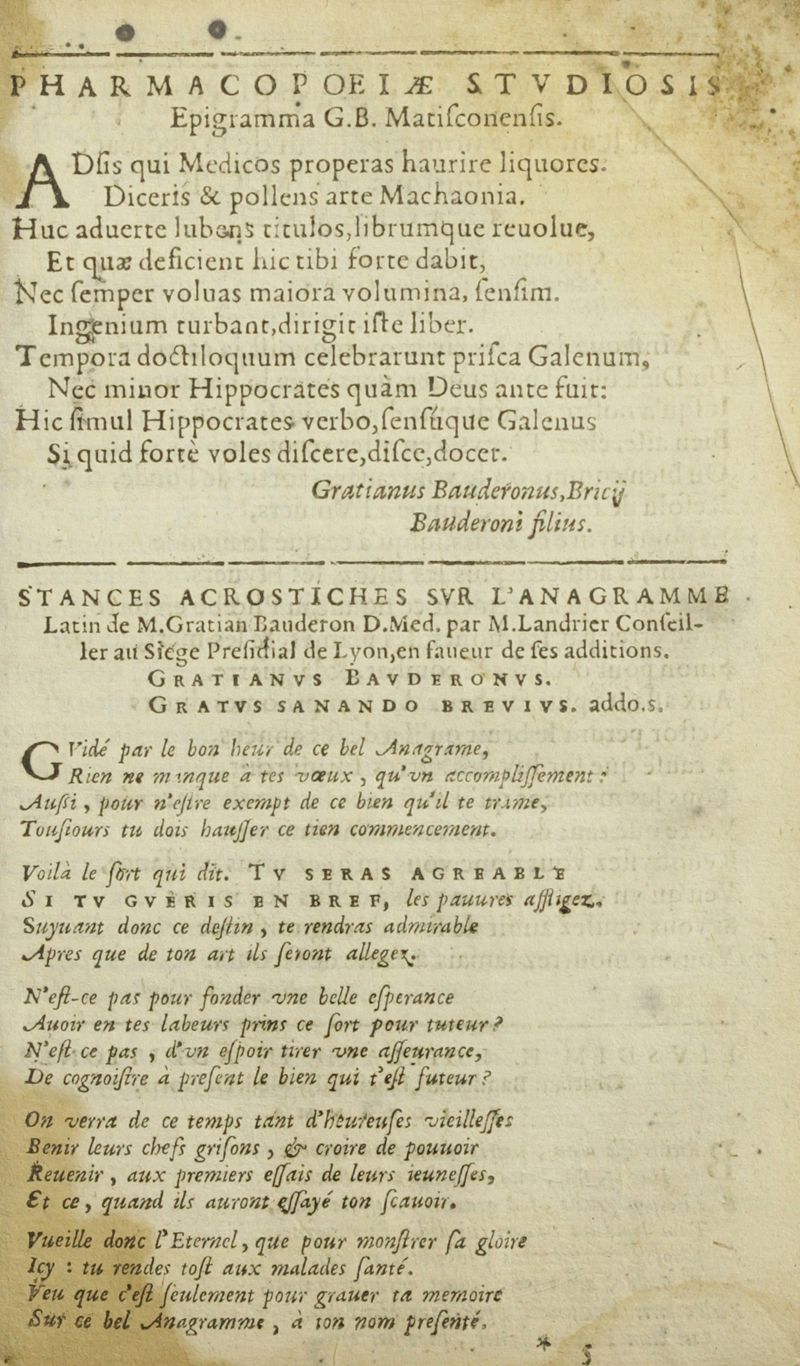 PHARMACOPOEIÆ STVDIOSIS
Epigramma G.B. Matiſconenſis.
ADſis qui Medicos properas haurire liquores.
Diceris & pollens arte Machaonia.
Huc aduerte lubens titulos,librumque reuolue,
Et quæ deficient hic tibi forte dabit,
Nec ſemper voluas maiora volumina, ſenſim.
Ingenium turbant,dirigit iſte liber.
Tempora doctiloquum celebrarunt priſca Galenum,
Nec minor Hippocrates quàm Deus ante fuit:
Hic ſimul Hippocrates verbo,ſenſúque Galenus
Si quid fortè voles diſcere,diſce,docet.
Gratianus Bauderonus,Bricij
Bauderoni filius.
STANCES ACROSTICHES SVR L'ANAGRAMME
Latin de M.Gratian Bauderon D.Med. par M.Landrier Conſeil-
ler au Siege Preſidial de Lyon,en faueur de ſes additions.
GRATIANVS BAVDERONVS.
GRATVS SANANDO BREVIVS. addo.s.
GVidé par le bon heur de ce bel Anagrame,
Rien ne manque à tes vœux , qu'vn accompliſſement :
Auſſi , pour n'eſtre exempt de ce bien qu'il te trame,
Touſiours tu dois hauſſer ce tien commencement.
Voilà le ſort qui dit. TV SERAS AGREABLE
SI TV GVERIS EN BREF, les pauures affligez.
Suyuant donc ce deſtin , te rendras admirable
Apres que de ton art ils ſeront allegez.
N'eſt-ce pas pour fonder vne belle eſperance
Auoir en tes labeurs prins ce ſort pour tuteur ?
N'eſt-ce pas , d'vn eſpoir tirer vne aſſeurance,
De cognoiſtre à preſent le bien qui t'eſt futeur ?
On verra de ce temps tant d'heureuſes vieilleſſes
Benir leurs chefs griſons , & croire de pouuoir
Reuenir , aux premiers eſſais de leurs ieuneſſes,
Et ce , quand ils auront eſſayé ton ſcauoir.
Vueille donc l'Eternel , que pour monſtrer ſa gloire
Icy : tu rendes toſt aux malades ſanté.
Veu que c'eſt ſeulement pour grauer ta memoire
Sur ce bel Anagramme , à ton nom preſenté.
* 5